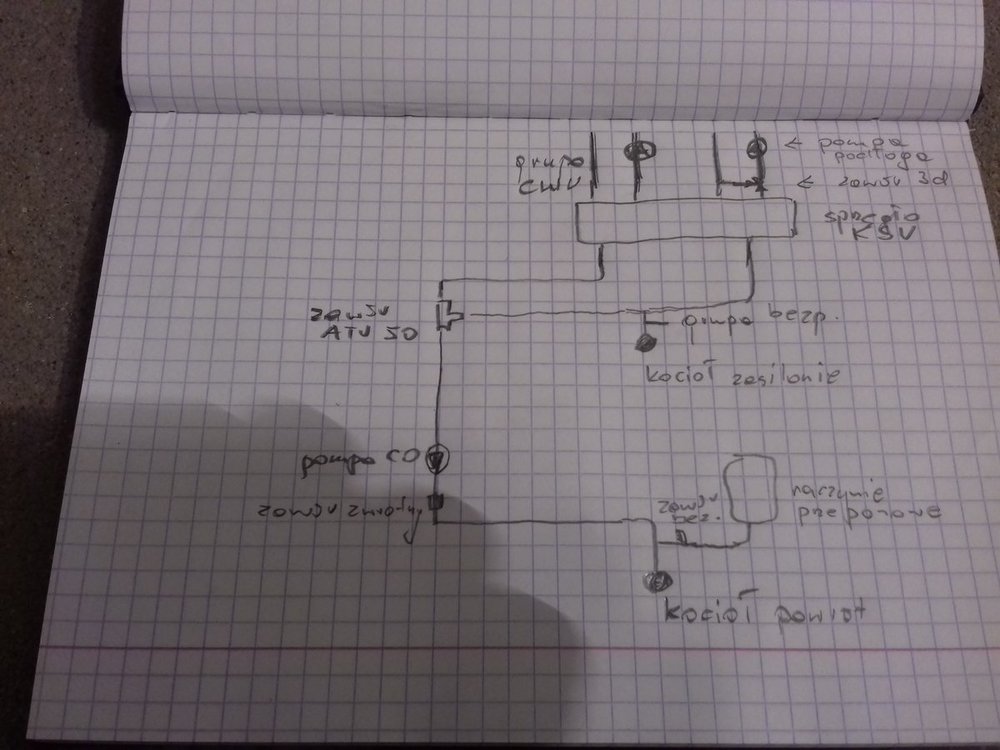 grupa
CWU
pompa
podłoga
zawów 3d
sprzęgło
KSV
zawów
ATV 50
grupa bezp.
kocioł zasilanie
pompa CO
zawów zwrotny
zawów
bez.
naczynie
przeponowe
kocioł powrót